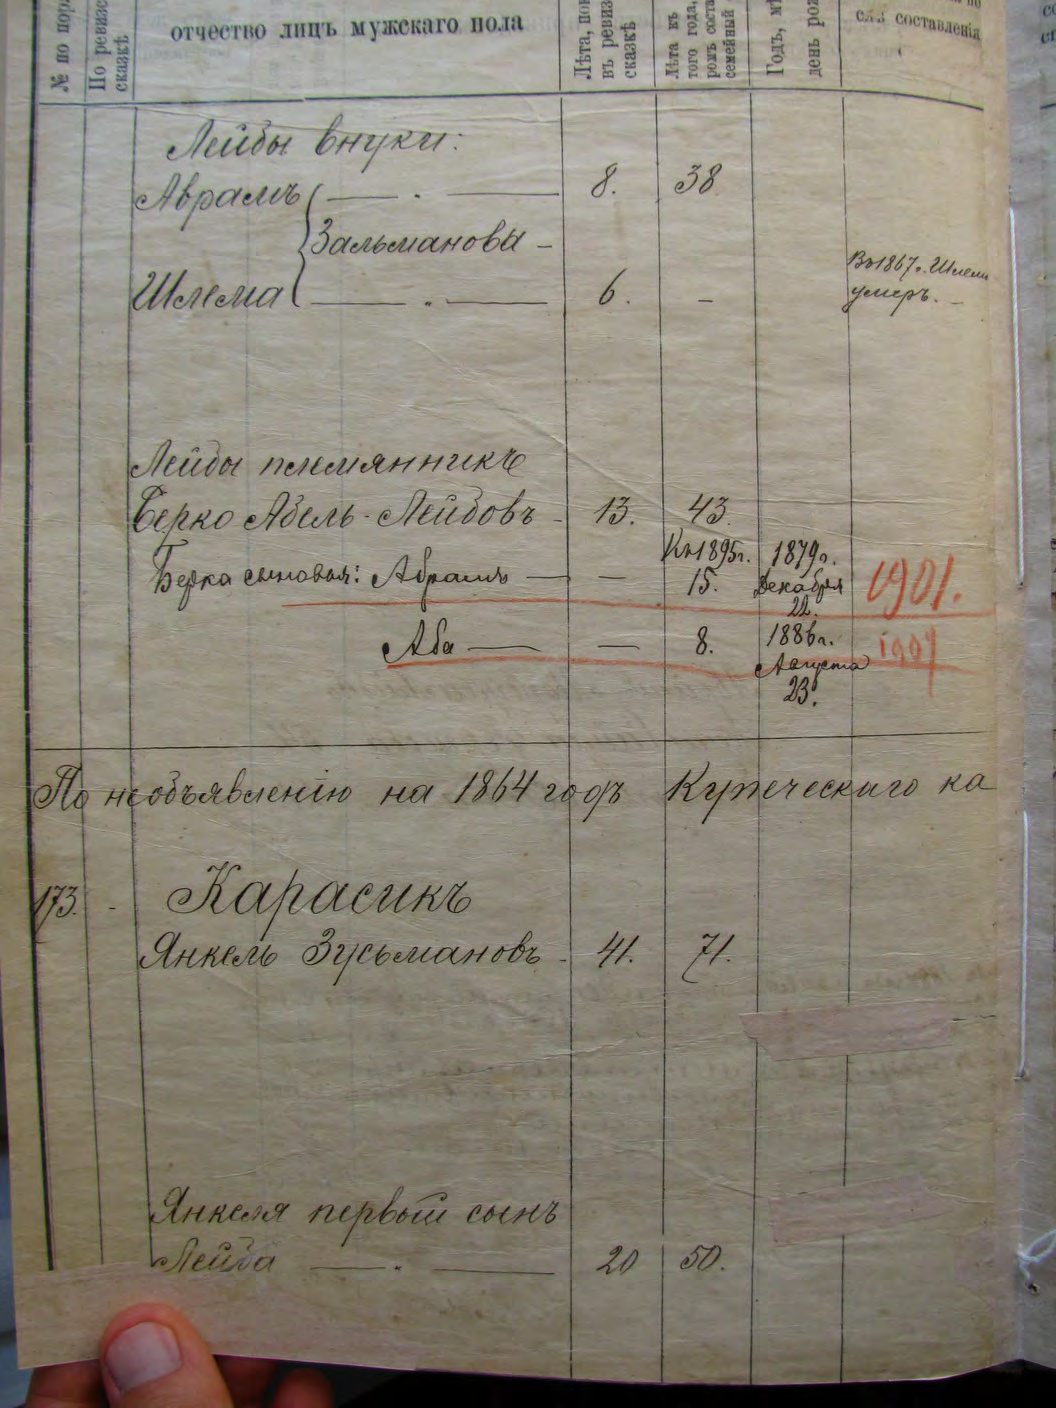 № по
По
сказкѣ
отчество лицъ мужскаго пола
Лѣта,
въ
сказкѣ
Лѣта къ
того года,
семейный
Годъ,
день
составленія
Лейбы внуки:
Аврамъ — " — 8. 38
Зальмановы -
Шлема — " — 6. -
Въ 1867 г. Шлема
умеръ. -
Лейбы племянникъ
Берко Абель-Лейбовъ - 13. 43.
Къ 1895 г. 1879 г.
Берка сыновья: Абрамъ — — 15. Декабря
22.
1901.
Аба — — 8. 1886 г.
Августа
23.
1907
По необъявленію на 1864 годъ Купеческаго ка
173. - Карасикъ
Янкель Зусьмановъ - 41. 71.
Янкеля первый сынъ
Лейба — " — 20 50.